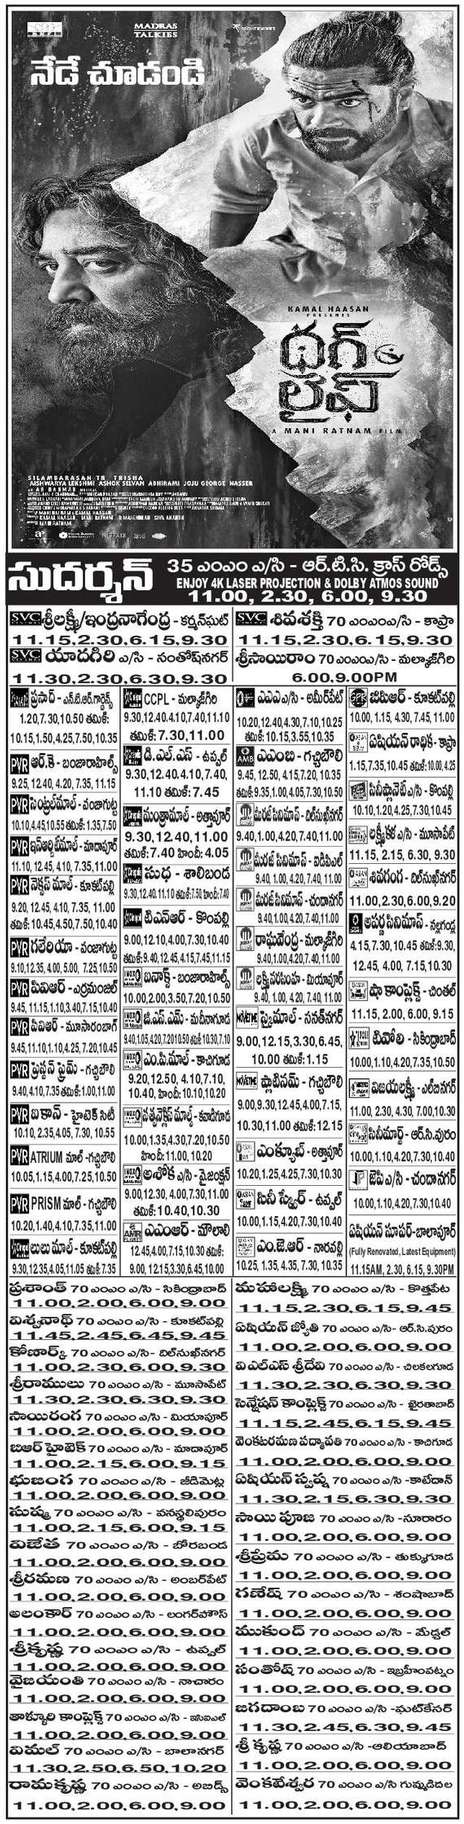 MADRAS
TALKIES
నేడే చూడండి
KAMAL HAASAN
PRESENTS
థగ్
లైఫ్
A MANI RATNAM FILM
SILAMBARASAN TR TRISHA
AISHWARYA LEKSHMI ASHOK SELVAN ABHIRAMI JOJU GEORGE NASSER
సుదర్శన్ 35 ఎంఎం ఎ/సి - ఆర్.టి.సి. క్రాస్ రోడ్స్
ENJOY 4K LASER PROJECTION & DOLBY ATMOS SOUND
11.00, 2.30, 6.00, 9.30
SVC శ్రీలక్ష్మి/ఇంద్రనాగేంద్ర - కర్మన్‌ఘాట్
11.15,2.30,6.15,9.30
SVC యాదగిరి ఎ/సి - సంతోష్‌నగర్
11.30,2.30,6.30,9.30
SVC శివశక్తి 70 ఎంఎంఎ/సి - కాప్రా
11.15,2.30,6.15,9.30
శ్రీసాయిరాం 70ఎంఎంఎ/సి - మల్కాజ్‌గిరి
6.00,9.00PM
ప్రసాద్ - ఎన్.టి.ఆర్.గార్డెన్స్
1.20,7.30,10.50 తమిళ్:
10.15,1.50,4.25,7.50,10.35
PVR ఆర్.కె - బంజారాహిల్స్
9.25, 12.40, 4.20, 7.35, 11.15
PVR సెంట్రల్‌మాల్ - పంజాగుట్ట
10.10,4.45,10.55 తమిళ్:1.35,7.50
PVR ఇన్‌ఆర్బిట్‌మాల్ - మాదాపూర్
11.10, 12.45, 4.10, 7.35, 11.00
PVR నెక్సస్ మాల్ - కూకట్‌పల్లి
9.20, 12.45, 4.10, 7.35, 11.00
తమిళ్: 10.45,4.50,7.50,10.40
PVR గలేరియా - పంజాగుట్ట
9.10,12.35, 4.00, 5.00, 7.25,10.50
PVR పివిఆర్ - ఎర్రమంజిల్
9.45, 11.15,1.10,3.40,7.15,10.40
PVR పివిఆర్ - మూసారంబాగ్
9.45,11.10,1.10,4.25, 7.20,10.45
PVR ప్రెస్టన్ ప్రైమ్ - గచ్చిబౌలి
9.40,4.10,7.35,1.00, 11.00
PVR ఐకాన్ - హైటెక్ సిటీ
10.10, 2.35, 4.05, 7.30, 10.55
PVR ATRIUM మాల్ - గచ్చిబౌలి
10.05,1.15,4.00,7.25,10.50
PVR PRISM మాల్ - గచ్చిబౌలి
10.20,1.40,4.10,7.35, 11.00
లులు మాల్ - కూకట్‌పల్లి
9.30,12.35,4.05,11.05 తమిళ్: 7.35
CCPL - మల్కాజ్‌గిరి
9.30,12.40,4.10,7.40,11.10
తమిళ్: 7.30,11.00
డి.ఎల్.ఎస్ - ఉప్పల్
9.30,12.40,4.10, 7.40,
11.10 తమిళ్: 7.45
మంత్రామాల్ - అత్తాపూర్
9.30, 12.40, 11.00
తమిళ్:7.40 హిందీ: 4.05
సుధ - శాలిబండ
టిఎన్ఆర్ - కొంపల్లి
9.00,12.10,4.00,7.30,10.40
ఐనాక్స్ - బంజారాహిల్స్
10.00,2.00,3.50,7.20,10.50
జి.ఎస్.ఎమ్ - మదీనాగూడ
ఎం.పి.మాల్ - కాచిగూడ
9.20, 12.50, 4.10,7.10,
10.40, హిందీ:10.10,10.20
10.00,1.35,4.30,7.20,10.50
హిందీ: 11.00, 10.20
అశోక ఎ/సి -
9.00,12.30, 4.00, 7.30,11.00
తమిళ్: 10.40,10.30
AMR ఎఎంఆర్ - మౌలాలి
12.45,4.00,7.15,10.30 తమిళ్:
9.00, 12.15,3.30,6.45, 10.00
ఎఎఎఎ/సి - అమీర్‌పేట్
10.20,12.40, 4.30, 7.10, 10.25
తమిళ్: 10.15,3.35,6.55
AMB ఎఎంబి - గచ్చిబౌలి
9.45, 12.50, 4.15,7.20, 10.35
మిరాజ్ సినిమాస్ - దిల్‌సుఖ్‌నగర్
9.40,1.00, 4.20, 7.40, 11.00
మిరాజ్ సినిమాస్ - ఐడిపిఎల్
9.40, 1.00, 4.20, 7.40, 11.00
మిరాజ్ సినిమాస్ - చందానగర్
9.40, 1.00, 4.20, 7.40, 11.00
రాఘవేంద్ర - మల్కాజ్‌గిరి
9.40,1.00,4.20,7.40, 11.00
లక్ష్మీనరసింహ - మియాపూర్
9.40, 1.00, 4.20, 7.40, 11.00
MOVIETIME ప్రైమ్‌మాల్ - సనత్‌నగర్
9.00,12.15,3.30,6.45,
10.00 తమిళ్: 1.15
MOVIETIME ప్లాటినమ్ - గచ్చిబౌలి
9.00,9.30,12.45,4.00,7.15,
10.30,11.00 తమిళ్: 12.15
ఎంక్యూబ్ - అత్తాపూర్
10.20,1.25,4.25,7.30,10.30
సినీ స్క్వేర్ - ఉప్పల్
10.00,1.15,4.20,7.30,10.40
ఎం.జె.ఆర్ - నారపల్లి
10.25, 1.35, 4.35, 7.30, 10.35
జిపిఆర్ - కూకట్‌పల్లి
10.00, 1.15, 4.30, 7.45, 11.00
ఏషియన్ రాధిక - కాప్రా
1.15, 7.35, 10.45 తమిళ్: 10.00, 4.25
సినీప్లానెట్ ఎ/సి - కొంపల్లి
10.10,1.20,4.25,7.30,10.45
లక్ష్మీకళ ఎ/సి - మూసాపేట్
11.15, 2.15, 6.30, 9.30
శివగంగ - దిల్‌సుఖ్‌నగర్
11.00,2.30,6.20,9.20
అపర్ణ సినిమాస్ - నల్లగండ్ల
4.15,7.30, 10.45 తమిళ్:9.30,
12.45, 4.00, 7.15,10.30
షా కాంప్లెక్స్ - చింతల్
11.15, 2.00, 6.00, 9.15
టివోలి - సికింద్రాబాద్
10.00,1.10,4.20,7.35,10.50
విజయలక్ష్మి - ఎల్‌బినగర్
11.00, 2.30, 4.30, 7.00, 10.30
సినీమార్ట్ - ఆర్.సి.పురం
10.00,1.10,4.20,7.30,10.40
జెపి ఎ/సి - చందానగర్
10.00,1.10,4.20,7.30,10.40
ఏషియన్ సూపర్-బాలాపూర్
(Fully Renovated, Latest Equipment)
11.15AM, 2.30, 6.15, 9.30PM
ప్రశాంత్ 70 ఎంఎం ఎ/సి - సికింద్రాబాద్
11.00,2.00,6.00,9.00
విశ్వనాథ్ 70 ఎంఎం ఎ/సి - కూకట్‌పల్లి
11.45,2.45,6.45,9.45
కోణార్క్ 70 ఎంఎం ఎ/సి - దిల్‌సుఖ్‌నగర్
11.00,2.30,6.00,9.30
శ్రీరాములు 70 ఎంఎం ఎ/సి - మూసాపేట్
11.30,2.30,6.30,9.30
సాయిరంగ 70 ఎంఎం ఎ/సి - మియాపూర్
11.00,2.00,6.00,9.00
బిఆర్ హైటెక్ 70 ఎంఎం ఎ/సి - మాదాపూర్
11.00,2.15,6.00,9.15
భుజంగ 70 ఎంఎం ఎ/సి - జీడిమెట్ల
11.00,2.00,6.00,9.00
సుష్మ 70 ఎంఎం ఎ/సి - వనస్థలిపురం
11.00,2.15,6.00,9.15
విజేత 70 ఎంఎం ఎ/సి - బోరబండ
11.00,2.00,6.00,9.00
శ్రీరమణ 70 ఎంఎం ఎ/సి - అంబర్‌పేట్
11.00,2.00,6.00,9.00
అలంకార్ 70 ఎంఎం ఎ/సి - లంగర్‌హౌస్
11.00,2.00,6.00,9.00
శ్రీకృష్ణ 70 ఎంఎం ఎ/సి - ఉప్పల్
11.00,2.00,6.00,9.00
వైజయంతి 70 ఎంఎం ఎ/సి - నాచారం
11.00,2.00,6.00,9.00
తాళ్ళూరి కాంప్లెక్స్ 70 ఎంఎం ఎ/సి - ఇసిఐఎల్
11.00,2.00,6.00,9.00
విమల్ 70 ఎంఎం ఎ/సి - బాలానగర్
11.30,2.50,6.50,10.20
రామకృష్ణ 70 ఎంఎం ఎ/సి - అబిడ్స్
11.00,2.00,6.00,9.00
మహాలక్ష్మి 70 ఎంఎం ఎ/సి - కొత్తపేట
11.15,2.30,6.15,9.45
ఏషియన్ జ్యోతి 70 ఎంఎం ఎ/సి- ఆర్.సి.పురం
11.00,2.00,6.00,9.00
విఎల్ఎస్ శ్రీదేవి 70 ఎంఎం ఎ/సి - చిలకలగూడ
11.30,2.30,6.30,9.30
సెన్సేషన్ కాంప్లెక్స్ 70 ఎంఎం ఎ/సి - ఖైరతాబాద్
11.15,2.45,6.15,9.45
వెంకటరమణ పద్మావతి 70 ఎంఎంఎ/సి - కాచిగూడ
11.00,2.00,6.00,9.00
ఏషియన్ స్వప్న 70 ఎంఎం ఎ/సి - కాటేదాన్
11.30,2.15,6.30,9.30
సాయి పూజ 70 ఎంఎం ఎ/సి -సూరారం
11.00,2.00,6.00,9.00
శ్రీప్రేమ 70 ఎంఎం ఎ/సి - తుక్కుగూడ
11.00,2.00,6.00,9.00
గణేష్ 70 ఎంఎం ఎ/సి - శంషాబాద్
11.00,2.00,6.00,9.00
ముకుంద్ 70 ఎంఎం ఎ/సి - మేడ్చల్
11.00,2.00,6.00,9.00
సంతోష్ 70 ఎంఎం ఎ/సి - ఇబ్రహీంపట్నం
11.00,2.00,6.00,9.00
జగదాంబ 70 ఎంఎం ఎ/సి -ఘట్‌కేసర్
11.30,2.45,6.30,9.45
శ్రీ కృష్ణ 70 ఎంఎం ఎ/సి -ఆలియాబాద్
11.00,2.00,6.00,9.00
వెంకటేశ్వర 70 ఎంఎం ఎ/సి గుమ్మడిదల
11.00,2.00,6.00,9.00